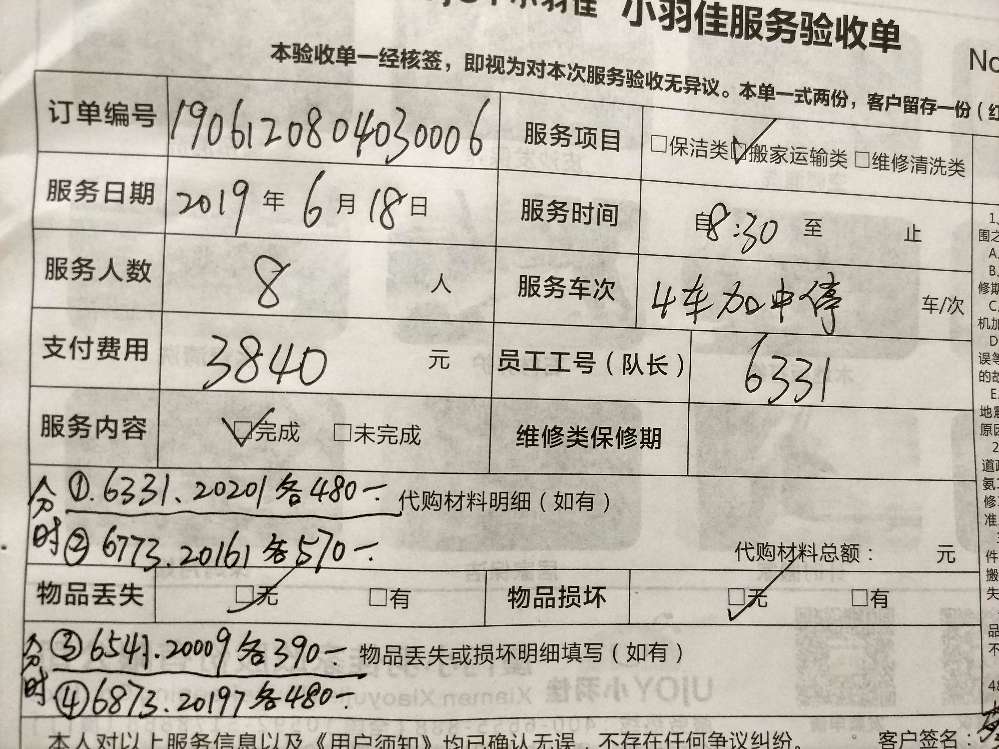 小羽佳 小羽佳服务验收单
No
本验收单一经核签，即视为对本次服务验收无异议。本单一式两份，客户留存一份（红
订单编号 1906120804030006 服务项目 □保洁类 ☑搬家运输类 □维修清洗类
服务日期 2019年6月18日 服务时间 自8:30至 止
服务人数 8 人 服务车次 4车加中停 车/次
支付费用 3840 元 员工工号（队长） 6331
服务内容 ☑完成 □未完成 维修类保修期
分时 ①.6331.20201各480一 代购材料明细（如有）
②6773.20161各570一 代购材料总额： 元
物品丢失 ☑无 □有 物品损坏 ☑无 □有
分时 ③6541.20009各390一 物品丢失或损坏明细填写（如有）
④6873.20197各480一
本人对以上服务信息以及《用户须知》均已确认无误，不存在任何争议纠纷。 客户签名：